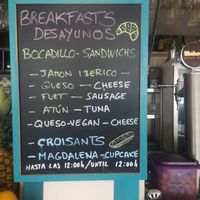 BREAKFASTS
DESAYUNOS
BOCADILLO - SANDWICHS
- JAMON IBERICO
- QUESO - CHEESE
- FUET - SAUSAGE
- ATÚN - TUNA
- QUESO-VEGAN - CHEESE
CROISANTS
- MAGDALENA - CUPCAKE
HASTA LAS 12:00h / UNTIL 12:00h